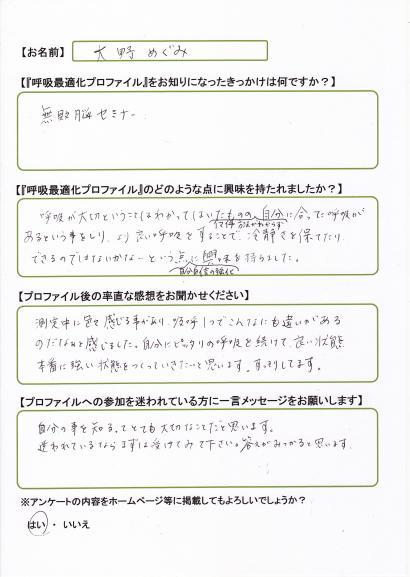 【お名前】 大野 めぐみ
【『呼吸最適化プロファイル』をお知りになったきっかけは何ですか？】
無敗脳セミナー
【『呼吸最適化プロファイル』のどのような点に興味を持たれましたか？】
呼吸が大切ということはわかってはいたものの、自分に合った呼吸が
あるという事をしり、より良い呼吸をすることで、冷静さを保てたり
できるのではないかな〜という点に興味を持ちました。
自分自信の強化
【プロファイル後の率直な感想をお聞かせください】
測定中に色々感じる事があり、呼吸1つでこんなにも違いがある
のだなぁと感じました。自分にピッタリの呼吸を続けて、良い状態
本番に強い状態をつくっていきたいと思います。すっきりしてます。
【プロファイルへの参加を迷われている方に一言メッセージをお願いします】
自分の事を知るってとても大切なことだと思います。
迷われているならまずは受けてみて下さい。答えがみつかると思います。
※アンケートの内容をホームページ等に掲載してもよろしいでしょうか？
はい ・ いいえ